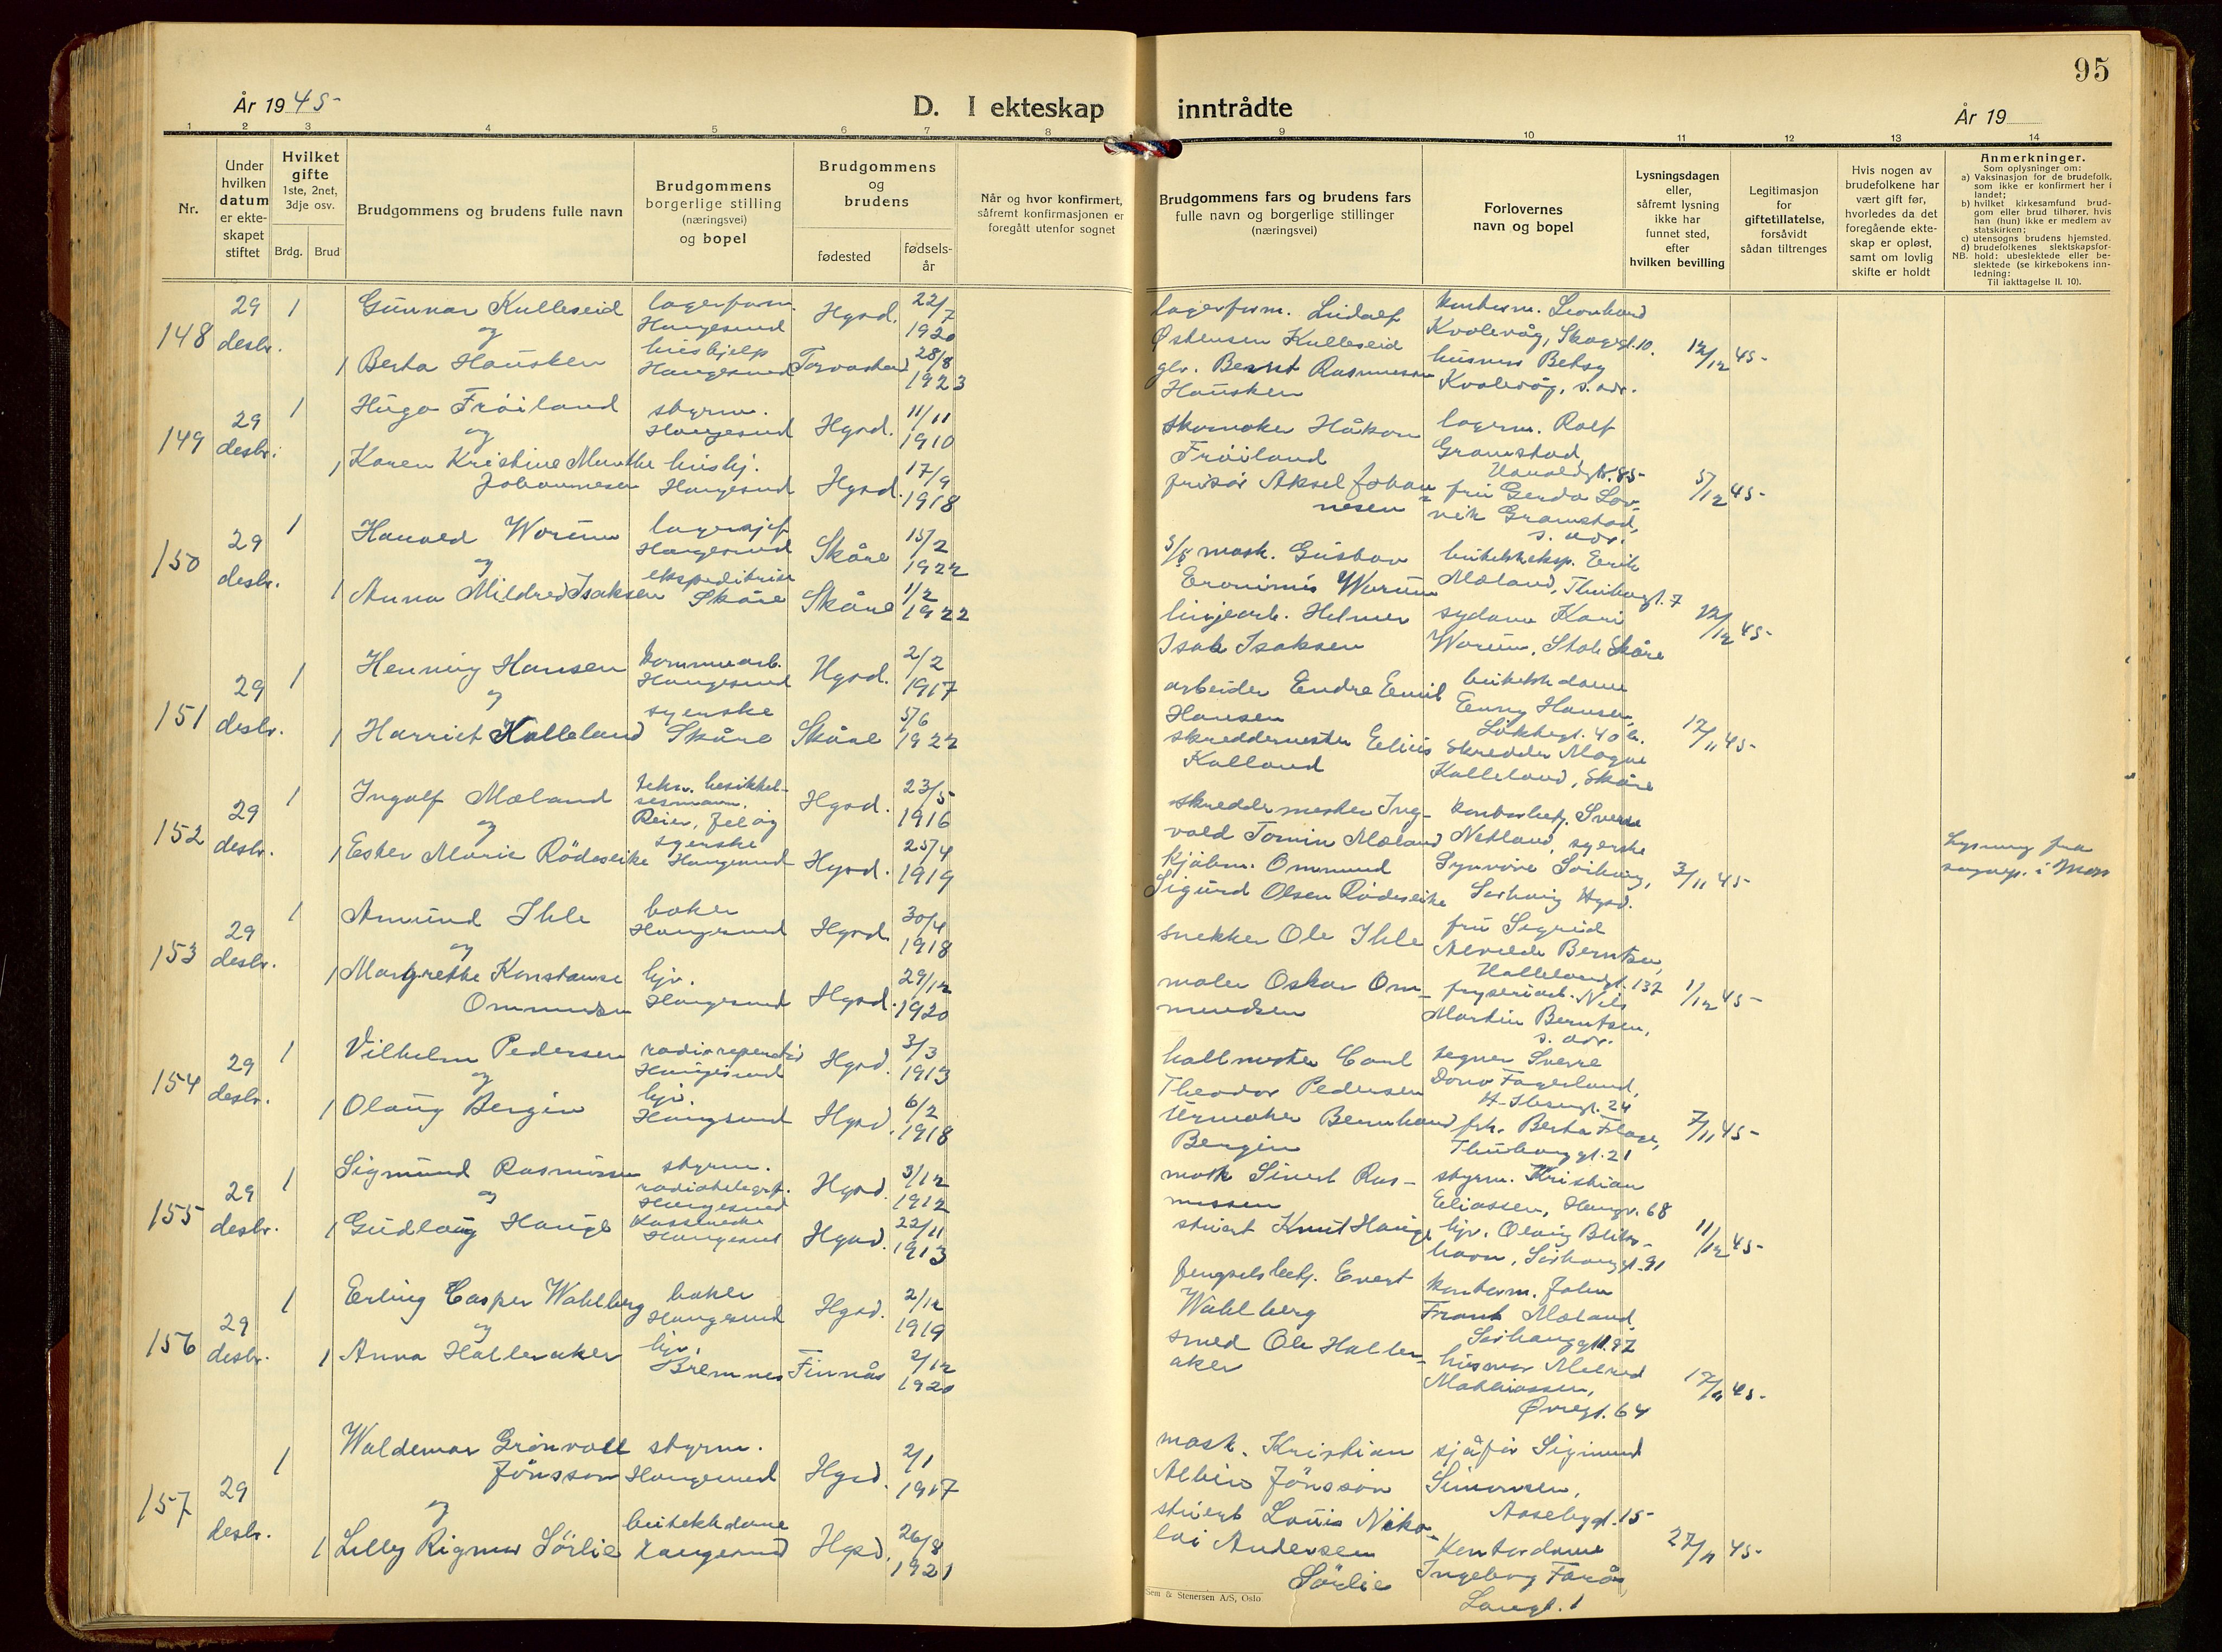 95
År 1945-
D. I ekteskap inntrådte
År 19
1 2 3 4 5 6 7 8 9 10 11 12 13 14
Nr.
Under
hvilken
datum
er ekte-
skapet
stiftet
Hvilket
gifte
1ste, 2net,
3dje osv.
Brdg. Brud
Brudgommens og brudens fulle navn
Brudgommens
borgerlige stilling
(næringsvei)
og bopel
Brudgommens
og
brudens
fødested
fødsels-
år
Når og hvor konfirmert,
såfremt konfirmasjonen er
foregått utenfor sognet
Brudgommens fars og brudens fars
fulle navn og borgerlige stillinger
(næringsvei)
Forlovernes
navn og bopel
Lysningsdagen
eller,
såfremt lysning
ikke har
funnet sted,
efter
hvilken bevilling
Legitimasjon
for
giftetillatelse,
forsåvidt
sådan tiltrenges
Hvis nogen av
brudefolkene har
vært gift før,
hvorledes da det
foregående ekte-
skap er opløst,
samt om lovlig
skifte er holdt
Anmerkninger.
Som oplysninger om:
a) Vaksinasjon for de brudefolk,
som ikke er konfirmert her i
landet;
b) hvilket kirkesamfund brud-
gom eller brud tilhører, hvis
han (hun) ikke er medlem av
statskirken;
c) utensogns brudens hjemsted.
d) brudefolkenes slektskapsfor-
hold: ubeslektede eller be-
slektede (se kirkebokens inn-
ledning:
NB.
Til iakttagelse II. 10).
148
29
desbr.
1
Gunnar Kulleseid
og
1 Berta Hausken
lagerform.
Haugesund
hushjelp
Haugesund
Hgsd.
22/7
1920
Torvastad
28/8
1923
lagerform. Lidolf
Østensen Kulleseid
gbr. Bernt Rasmussen
Hausken
kontorm. Leonhard
Kvalevåg, Skogagt. 10.
husmor Betsy
Kvalevåg, s. adr.
12/12 45-
149
29
desbr.
1
Hugo Frøiland
og
1 Karen Kristine Munthe
Johannesen
styrm.
Haugesund
hushj.
Haugesund
Hgsd.
11/11
1910
Hgsd.
17/9
1918
skomaker Håkon
Frøiland
frisør Aksel Johan-
nesen
lagerm. Rolf
Gramstad,
Haraldsgt. 85-
fru Gerda Lor-
vik Gramstad,
s. adr.
5/12 45-
150
29
desbr.
1
Harald Worum
og
1 Anna Mildred Isaksen
lagersjef
Haugesund
ekspeditrise
Skåre
Skåre
15/2
1922
Skåre
1/2
1922
s/s mask. Gustav
Eronimus Worum
linjearb. Helmer
Isak Isaksen
butikkeksp. Erik
Mæland, Thuhaugt. 7
sydame Kari
Worum, Stok Skåre
12/12 45-
151
29
desbr.
1
Henning Hansen
og
1 Harriet Kalleland
kommunearb.
Haugesund
syerske
Skåre
Hgsd.
2/2
1917
Skåre
5/6
1922
arbeider Endre Emil
Hansen
skreddermester Elius
Kalland
butikkdame
Enny Hansen,
40 b.
skredder Magne
Kalleland, Skåre
12/11 45-
152
29
desbr.
1
Ingolf Mæland
og
1 Ester Marie Rødeseike
tekn. besiktel-
sesmann.
syerske
Haugesund
Hgsd.
23/5
1916
Hgsd.
25/4
1919
skreddermester Ing-
vald Tomin Mæland
Kjøbm. Ommund
Sigurd Olsen Rødeseike
kontorbetj. Sverre
Netland, syerske
Synnøve Sørhaug,
Sørhaug Hgsd.
3/11 45-
Lysning fra
sognep. i Moss
153
29
desbr.
1
Amund Ihle
og
1 Margrethe Konstanse
Ommundsen
baker
Haugesund
hjv.
Haugesund
Hgsd.
30/4
1918
Hgsd.
29/12
1920
snekker Ole Ihle
maler Oskar Om-
mundsen
fru Sigrid
Alvilde Berntsen,
137
fryseriarb. Nils
Martin Berntsen,
s. adr.
1/12 45-
154
29
desbr.
1
Vilhelm Pedersen
og
1 Olaug Bergin
radioreparatør
Haugesund
hjv.
Haugesund
Hgsd.
3/3
1913
Hgsd.
6/2
1918
hallmester Carl
Theodor Pedersen
Urmaker Bernhard
Bergin
tegner Sverre
Donv Fagerland,
H. Ibsengt. 24
frk. Berta Flage,
Thuhauggt. 21
7/11 45-
155
29
desbr.
1
Sigmund Rasmussen
og
1 Gudlaug Hauge
styrm.
radiotelegrf.
Haugesund
Kasserske
Haugesund
Hgsd.
3/12
1912
Hgsd.
22/11
1913
mask Sivert Ras-
mussen
stuert Knut Hauge
styrm. Kristian
Eliassen, Haugv. 68
hjv. Olaug Bleks-
havn, Sørhauggt. 91
11/12 45-
156
29
desbr.
1
Erling Casper Wahlberg
og
1 Anna Halleraker
baker
Haugesund
hjv.
Bremnes
Hgsd.
2/12
1919
Finnås
2/12
1920
fengselsbetj. Evert
Wahlberg
smed Ole Haller-
aker
kontorm. John
Frank Mæland,
Sørhauggt. 97
husmor Milred
Mathiassen,
Øvregt. 64
17/11 45-
157
29
desbr.
1
Waldemar Grönvall
Jönsson
og
1 Lilly Rigmor Sörlie
styrm.
Haugesund
butikkdame
Haugesund
Hgsd.
2/1
1917
Hgsd.
26/8
1921
mask. Kristian
Albin Jönsson
stuert Louis Niko-
lai Andersen
Sörlie
sjåfør Sigmund
Simonsen,
Aasebygt. 15-
Kontordame
Ingeborg Farås,
Langt. 1
27/11 45-
Sem & Stenersen A/S, Oslo